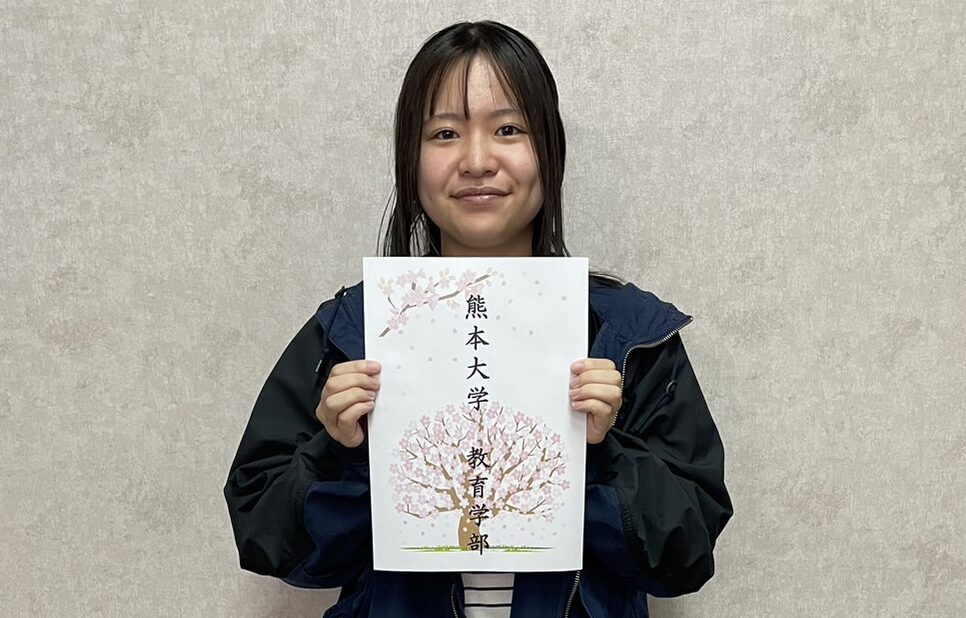 熊本大学　教育学部